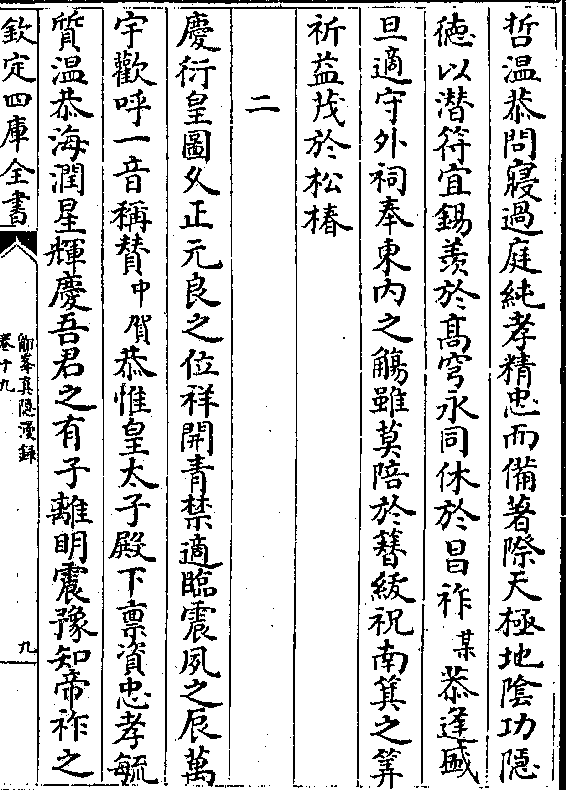 哲温恭問寢過庭純孝精忠而備著際天極地陰功隱
徳以潛符宜錫羨於髙穹永同休於昌祚某恭逢盛
旦適守外祠奉東内之觴雖莫陪於簪紱祝南箕之筭
祈益茂於松椿
二
慶衍皇圖久正元良之位祥開青禁適臨震夙之辰萬
宇歡呼一音稱賛中賀恭惟皇太子殿下禀資忠孝毓
質温恭海潤星輝慶吾君之有子離明震豫知帝祚之
欽定四庫全書
鄮峯真隱漫錄
卷十九
九